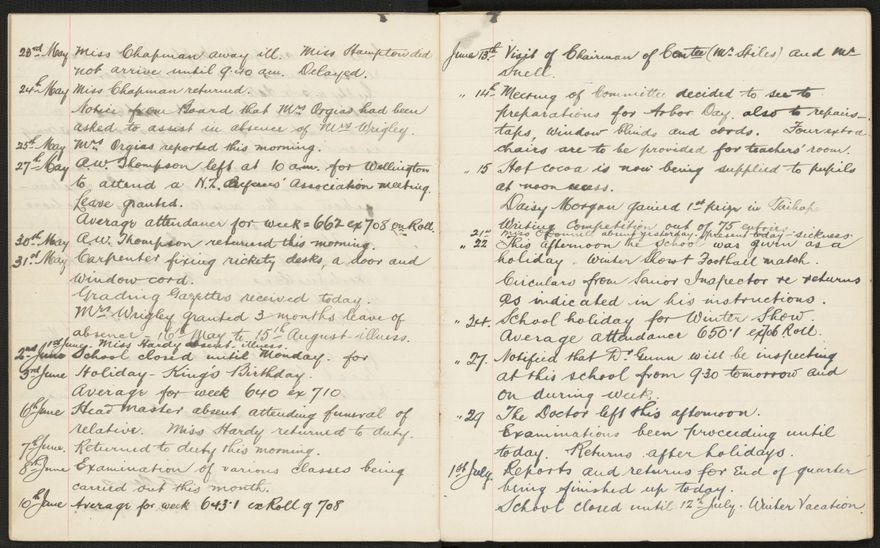 23rd May Miss Chapman away ill. Miss Hampton did
not arrive until 9.40 am. Delayed.
24th May Miss Chapman returned.
Notice from Board that Mrs Orgias had been
asked to assist in absence of Mrs Wrigley.
25th May Mrs Orgias reported this morning.
27th May A.W. Thompson left at 10 a.m. for Wellington
to attend a N.Z. Referees' Association meeting.
Leave granted.
Average attendance for week = 662 ex 708 on Roll.
30th May A.W. Thompson returned this morning.
31st May Carpenter fixing rickety desks, a door and
window cord.
Grading Gazettes received today.
Mrs Wrigley granted 3 months leave of
absence 16th May to 15th August - illness.
1st June. Miss Hardy absent - illness.
2nd June School closed until Monday. for
3rd June Holiday - King's Birthday.
Average for week 640 ex 710.
6th June Head Master absent attending funeral of
relative. Miss Hardy returned to duty.
7th June. Returned to duty this morning.
8th June Examination of various classes being
carried out this month.
10th June Average for week 643.1 ex Roll of 708
June 13th Visit of Chairman of Comtee (Mr Stiles) and Mr
Snell.
" 14th Meeting of Committee decided to see to
preparations for Arbor Day, also to repairs -
taps, window blinds and cords. Four extra
chairs are to be provided for teachers' room.
" 15 Hot cocoa is now being supplied to pupils
at noon recess.
Daisy Morgan gained 1st prize in Taihape
Writing Competition out of 75 entries.
21st Miss absent yesterday. Present today - sickness.
" 22 This afternoon the School was given as a
holiday. Winter Show Football match.
Circulars from Senior Inspector re returns
as indicated in his instructions.
" 24. School holiday for Winter Show.
Average attendance 650.1 ex 706 Roll.
" 27. Notified that Dr Gunn will be inspecting
at this school from 9.30 tomorrow and
on during week.
" 29 The Doctor left this afternoon.
Examinations been proceeding until
today. Returns after holidays.
1st July. Reports and returns for End of quarter
being finished up today.
School closed until 12th July. Winter Vacation.